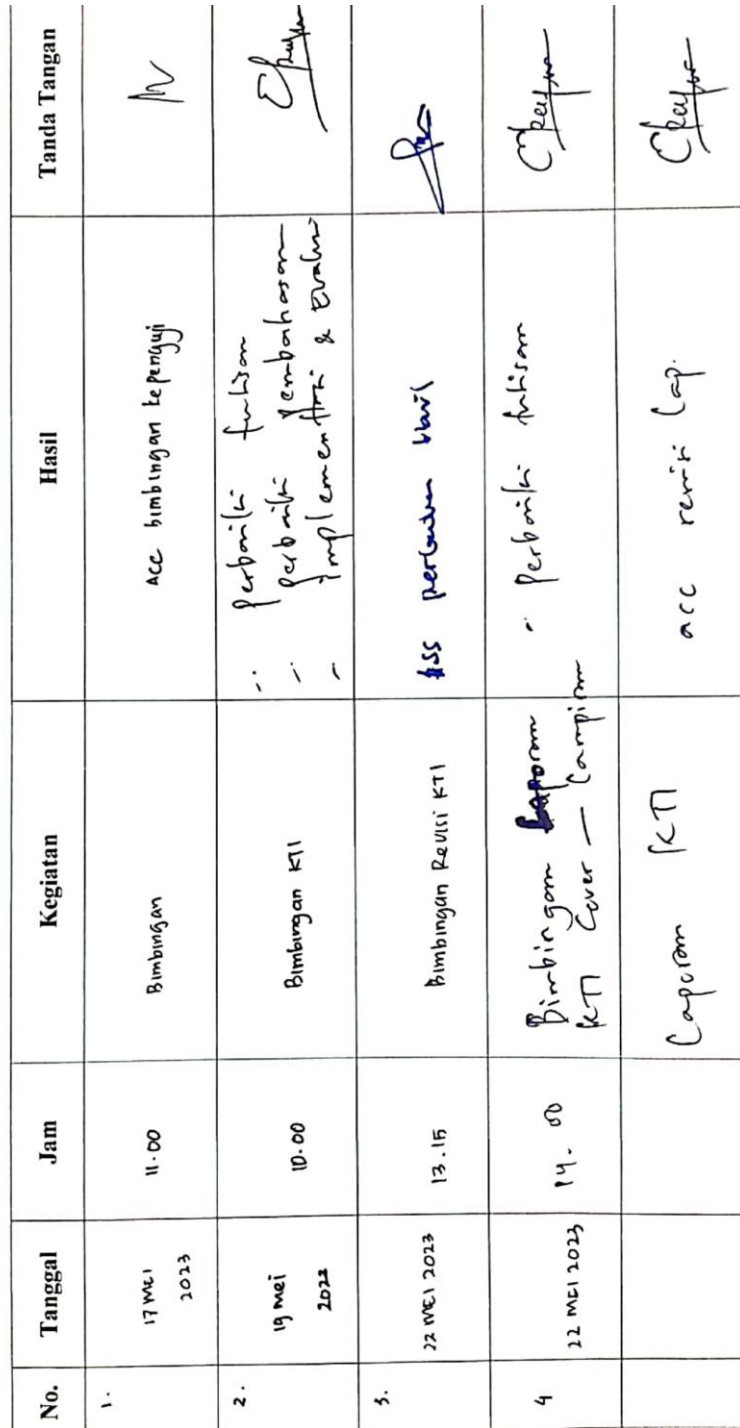 No. Tanggal Jam Kegiatan Hasil Tanda Tangan
1. 17 MEI 2023 11.00 Bimbingan ACC bimbingan kepenguji
2. 19 mei 10.00 Bimbingan KTI - perbaiki tulisan
- perbaiki pembahasan
- Implementasi & Evaluasi
3. 22 MEI 2023 13.15 Bimbingan Revisi KTI
4 22 MEI 2023 14.00 Bimbingan Laporan
KTI Cover — Lampiran - perbaiki tulisan
Laporan KTI acc revisi Lap.